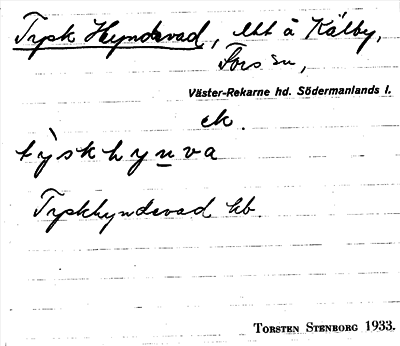 Tysk Hyndevad, ebt å Kälby,
Fors sn,
Väster-Rekarne hd. Södermanlands l.
ek.
týskhynva
Tyskhyndevad hb.
TORSTEN STENBORG 1933.